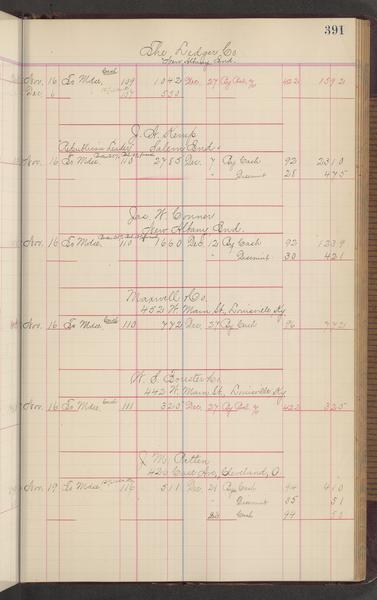 391
The Ledger Co
New Albany Ind.
Nov. 16 To Mdse. Cash 109 1042 Dec. 27 By Bal. 422 1592
Dec 6 " 137 550
J. H. Kemp
"Republican Leader" Salem Ind.
Nov. 16 To Mdse. 110 2785 Dec. 7 By Cash 92 2310
" Discount 28 475
Jas. W. Conner
New Albany Ind.
Nov. 16 To Mdse. 110 1660 Dec. 12 By Cash 92 1239
" Discount 30 421
Maxwell & Co.
452 W. Main St., Louisville Ky
Nov. 16 To Mdse. Cash 110 772 Dec. 27 By Cash 96 772
442 W. Main St., Louisville Ky
Nov. 16 To Mdse. Cash 111 325 Dec. 27 By Bal. 422 325
J. M. Patten
Cleveland, O.
Nov. 19 To Mdse. 116 511 Dec. 21 By Cash 94 410
" Discount 35 51
Cash 94 50